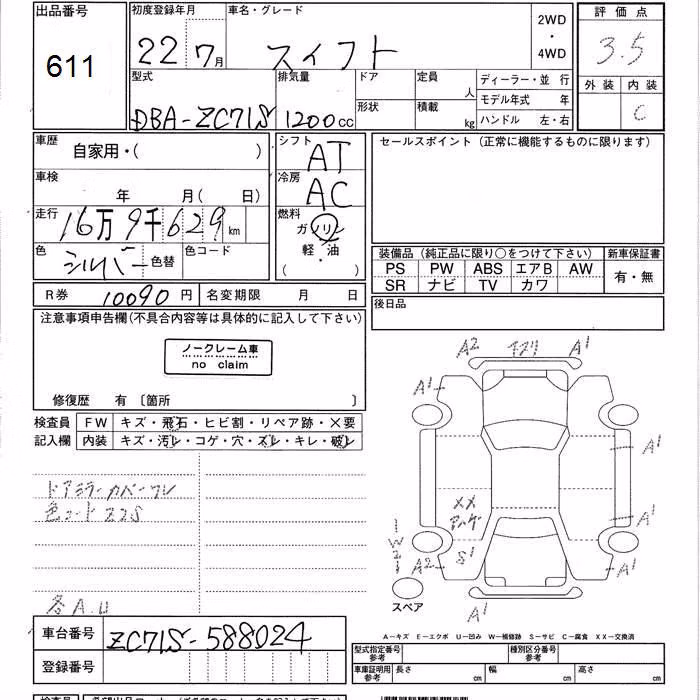 出品番号
611
初度登録年月
22 7月
車名・グレード
スイフト
2WD
・
4WD
評価点
3.5
外装 内装
C
型式
DBA-ZC71S
排気量
1200cc
ドア
形状
定員
人
積載
kg
ディーラー・並 行
モデル年式 年
ハンドル 左・右
車歴
自家用・( )
シフト
AT
車検
年 月( 日)
冷房
AC
走行
16万9千629km
燃料
ガソリン
軽・油
( )
色
シルバー 色替
色コード
セールスポイント(正常に機能するものに限ります)
装備品(純正品に限り○をつけて下さい)
PS PW ABS エアB AW
SR ナビ TV カワ
新車保証書
有・無
R券 10090円
名変期限 月 日
後日品
注意事項申告欄(不具合内容等は具体的に記入して下さい)
ノークレーム車
no claim
修復歴 有〔箇所 〕
検査員
記入欄
FW キズ・飛石・ヒビ割・リペア跡・×要
内装 キズ・汚レ・コゲ・穴・スレ・キレ・破レ
ドアミラーカバーワレ
色コード Z2S
各A.U
A2 A1
A1
A1
XX
A1
A2 S1 A1
A1
スペア
A―キズ E―エクボ U―凹み W―補修跡 S―サビ C―腐食 XX―交換済
車台番号
ZC71S-588024
登録番号
型式指定番号
参考
種別区分番号
参考
車庫証明用
参考
長さ cm
幅 cm
高さ cm